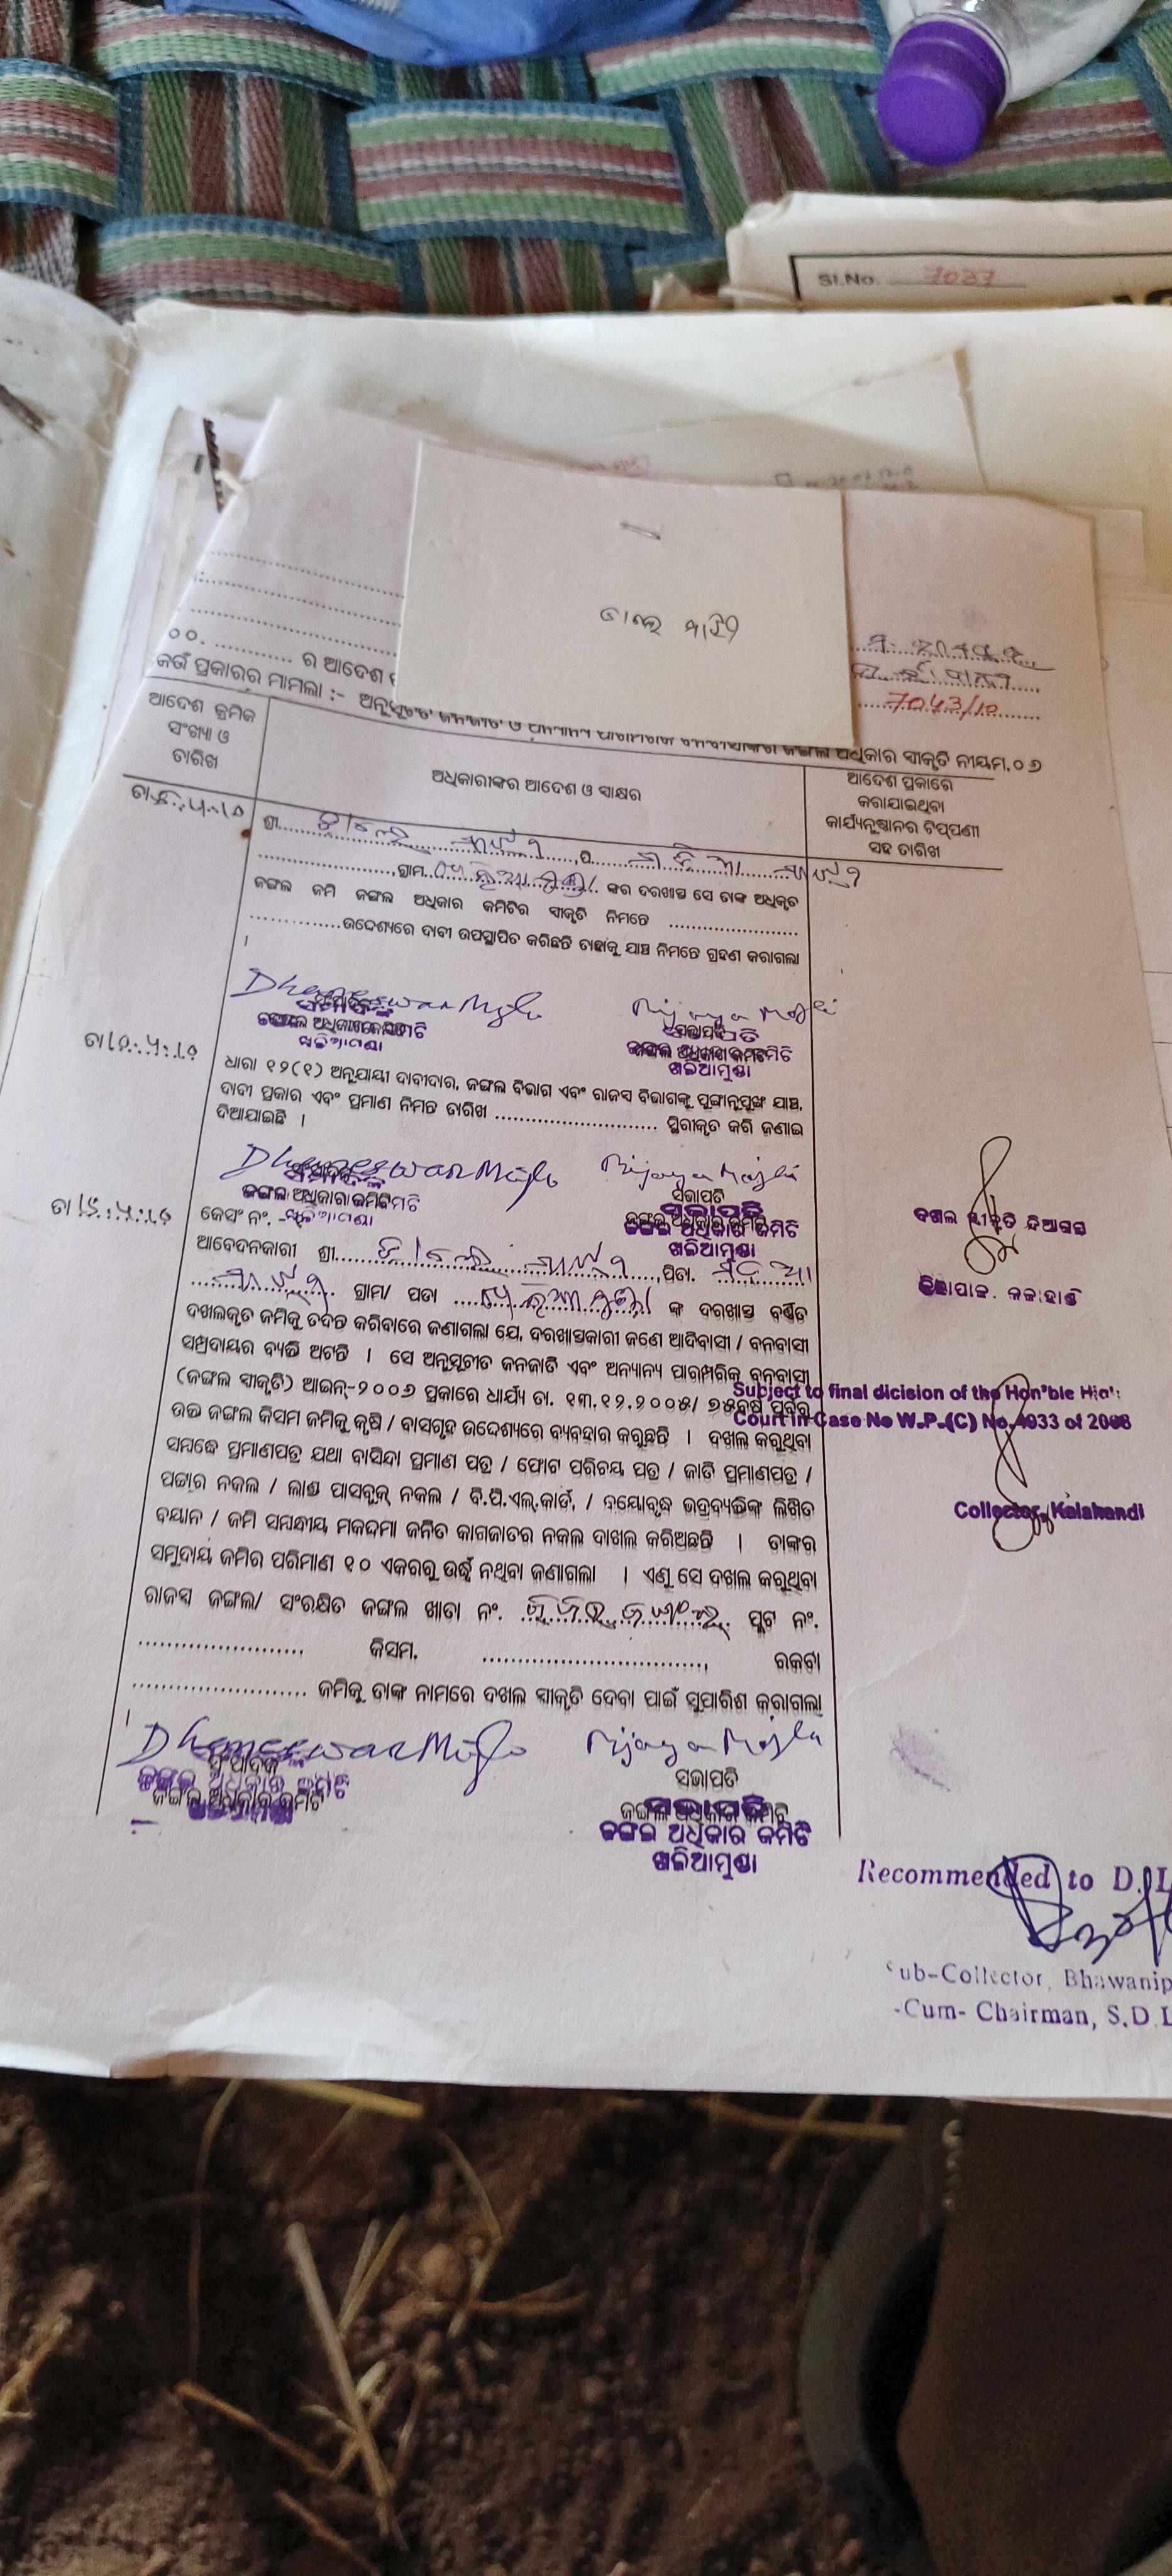 Sl.No. 7037
ଡାଲେ ମାଝୀ
7043/10
୦୦. ............ ର ଆଦେଶ
କେଉଁ ପ୍ରକାରର ମାମଲା :- ଅନୁସୂଚିତ ଜନଜାତି ଓ ଅନ୍ୟାନ୍ୟ ପାରମ୍ପରିକ ବନବାସୀଙ୍କର ଜଙ୍ଗଲ ଅଧିକାର ସ୍ୱୀକୃତି ନୀୟମ.୦୬
ଆଦେଶ କ୍ରମିକ
ସଂଖ୍ୟା ଓ
ତାରିଖ
ଅଧିକାରୀଙ୍କର ଆଦେଶ ଓ ସାକ୍ଷର
ଆଦେଶ ପ୍ରକାରେ
କରାଯାଇଥିବା
କାର୍ଯ୍ୟନୁଷ୍ଠାନର ଟିପ୍ପଣୀ
ସହ ତାରିଖ
ଶ୍ରୀ. ଡାଲେ ମାଝୀ ,ପି.
,ଗ୍ରାମ. ଖଲିଆମୁଣ୍ଡା ଙ୍କର ଦରଖାସ୍ତ ସେ ତାଙ୍କ ଅଧିକୃତ
ଜଙ୍ଗଲ ଜମି ଜଙ୍ଗଲ ଅଧିକାର କମିଟିର ସ୍ୱୀକୃତି ନିମନ୍ତେ ........................
................ଉଦ୍ଦେଶ୍ୟରେ ଦାବୀ ଉପସ୍ଥାପିତ କରିଛନ୍ତି ତାହାକୁ ଯାଞ୍ଚ ନିମନ୍ତେ ଗ୍ରହଣ କରାଗଲା
।
Dhaneswar Majhi Bijaya Majhi
ସଂପାଦକ ସଭାପତି
ଜଙ୍ଗଲ ଅଧିକାର କମିଟି ଜଙ୍ଗଲ ଅଧିକାର କମିଟି
ଖଲିଆମୁଣ୍ଡା ଖଲିଆମୁଣ୍ଡା
ଧାରା ୧୨(୧) ଅନୁଯାୟୀ ଦାବୀଦାର, ଜଙ୍ଗଲ ବିଭାଗ ଏବଂ ରାଜସ୍ୱ ବିଭାଗଙ୍କୁ ପୁଙ୍ଖାନୁପୁଙ୍ଖ ଯାଞ୍ଚ,
ଦାବୀ ପ୍ରକାର ଏବଂ ପ୍ରମାଣ ନିମନ୍ତେ ତାରିଖ .............................. ସ୍ଥିରୀକୃତ କରି ଜଣାଇ
ଦିଆଯାଇଛି ।
Dhaneswar Majhi Bijaya Majhi
ସଂପାଦକ ସଭାପତି
ଜଙ୍ଗଲ ଅଧିକାର କମିଟି ଜଙ୍ଗଲ ଅଧିକାର କମିଟି
ଖଲିଆମୁଣ୍ଡା ଖଲିଆମୁଣ୍ଡା
କେସ୍ ନଂ. -
ଆବେଦନକାରୀ ଶ୍ରୀ. ଡାଲେ ମାଝୀ ,ପିତା.
ମାଝୀ ଗ୍ରାମ/ ପଡା ଖଲିଆମୁଣ୍ଡା ଙ୍କ ଦରଖାସ୍ତ ବର୍ଣ୍ଣିତ
ଦଖଲକୃତ ଜମିକୁ ତଦନ୍ତ କରିବାରେ ଜଣାଗଲା ଯେ, ଦରଖାସ୍ତକାରୀ ଜଣେ ଆଦିବାସୀ / ବନବାସୀ
ସମ୍ପ୍ରଦାୟର ବ୍ୟକ୍ତି ଅଟନ୍ତି । ସେ ଅନୁସୂଚୀତ ଜନଜାତି ଏବଂ ଅନ୍ୟାନ୍ୟ ପାରମ୍ପରିକ ବନବାସୀ
(ଜଙ୍ଗଲ ସ୍ୱୀକୃତି) ଆଇନ୍-୨୦୦୬ ପ୍ରକାରେ ଧାର୍ଯ୍ୟ ତା. ୧୩.୧୨.୨୦୦୫/ ୭୫ବର୍ଷ ପୂର୍ବରୁ
ଉକ୍ତ ଜଙ୍ଗଲ କିସମ ଜମିକୁ କୃଷି / ବାସଗୃହ ଉଦ୍ଦେଶ୍ୟରେ ବ୍ୟବହାର କରୁଛନ୍ତି । ଦଖଲ କରୁଥିବା
ସମ୍ବନ୍ଧେ ପ୍ରମାଣପତ୍ର ଯଥା ବାସିନ୍ଦା ପ୍ରମାଣ ପତ୍ର / ଫୋଟ ପରିଚୟ ପତ୍ର / ଜାତି ପ୍ରମାଣପତ୍ର /
ପଟ୍ଟାର ନକଲ / ଲାଣ୍ଡ ପାସବୁକ୍ ନକଲ / ବି.ପି.ଏଲ୍.କାର୍ଡ, / ବୟୋବୃଦ୍ଧ ଭଦ୍ରବ୍ୟକ୍ତିଙ୍କ ଲିଖିତ
ବୟାନ / ଜମି ସମ୍ବନ୍ଧୀୟ ମକଦ୍ଦମା ଜନିତ କାଗଜାତର ନକଲ ଦାଖଲ କରିଅଛନ୍ତି । ତାଙ୍କର
ସମୁଦାୟ ଜମିର ପରିମାଣ ୧୦ ଏକରରୁ ଉର୍ଦ୍ଧ୍ୱ ନଥିବା ଜଣାଗଲା । ଏଣୁ ସେ ଦଖଲ କରୁଥିବା
ରାଜସ୍ୱ ଜଙ୍ଗଲ/ ସଂରକ୍ଷିତ ଜଙ୍ଗଲ ଖାତା ନଂ. ପ୍ଲଟ ନଂ.
........................ କିସମ. ................................, ରକବା
........................ ଜମିକୁ ତାଙ୍କ ନାମରେ ଦଖଲ ସ୍ୱୀକୃତି ଦେବା ପାଇଁ ସୁପାରିଶ କରାଗଲା
।
Dhaneswar Majhi Bijaya Majhi
ସଂପାଦକ ସଭାପତି
ଜଙ୍ଗଲ ଅଧିକାର କମିଟି ଜଙ୍ଗଲ ଅଧିକାର କମିଟି
ଖଲିଆମୁଣ୍ଡା
ଦଖଲ ସ୍ୱୀକୃତି ଦିଆଗଲା
ଜିଲ୍ଲାପାଳ. କଳାହାଣ୍ଡି
Subject to final dicision of the Hon'ble High
Court in Case No W.P.(C) No.4933 of 2008
Collector, Kalahandi
Recommended to D.L
Sub-Collector, Bhawanip
-Cum- Chairman, S.D.L